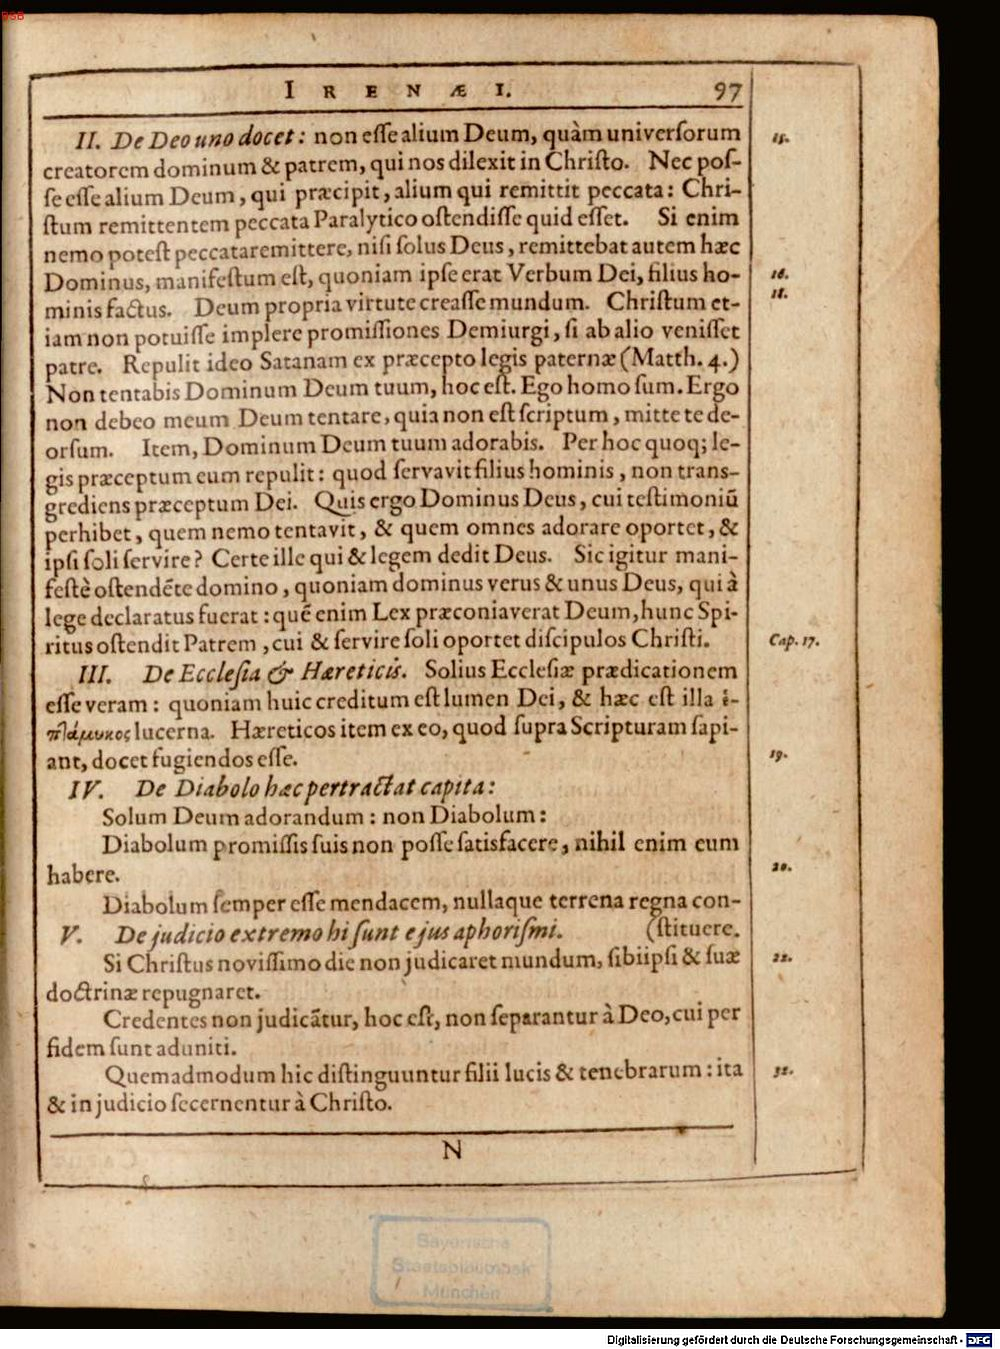 BSB
IRENÆ I. 97
II. De Deo uno docet: non esse alium Deum, quàm universorum
15.
creatorem dominum & patrem, qui nos dilexit in Christo. Nec pos-
se esse alium Deum, qui præcipit, alium qui remittit peccata: Chri-
stum remittentem peccata Paralytico ostendisse quid esset. Si enim
nemo potest peccata remittere, nisi solus Deus, remittebat autem hæc
Dominus, manifestum est, quoniam ipse erat Verbum Dei, filius ho-
16.
minis factus. Deum propria virtute creasse mundum. Christum et-
18.
iam non potuisse implere promissiones Demiurgi, si ab alio venisset
patre. Repulit ideo Satanam ex præcepto legis paternæ (Matth. 4.)
Non tentabis Dominum Deum tuum, hoc est. Ego homo sum. Ergo
non debeo meum Deum tentare, quia non est scriptum, mitte te de-
orsum. Item, Dominum Deum tuum adorabis. Per hoc quoq; le-
gis præceptum eum repulit: quod servavit filius hominis, non trans-
grediens præceptum Dei. Quis ergo Dominus Deus, cui testimoniũ
perhibet, quem nemo tentavit, & quem omnes adorare oportet, &
ipsi soli servire? Certe ille qui & legem dedit Deus. Sic igitur mani-
festè ostendẽte domino, quoniam dominus verus & unus Deus, qui à
lege declaratus fuerat: quẽ enim Lex præconiaverat Deum, hunc Spi-
ritus ostendit Patrem, cui & servire soli oportet discipulos Christi.
Cap. 17.
III. De Ecclesia & Hæreticis. Solius Ecclesiæ prædicationem
esse veram: quoniam huic creditum est lumen Dei, & hæc est illa ἑ-
πτάμυκος lucerna. Hæreticos item ex eo, quod supra Scripturam sapi-
ant, docet fugiendos esse.
19.
IV. De Diabolo hæc pertractat capita:
Solum Deum adorandum: non Diabolum:
Diabolum promissis suis non posse satisfacere, nihil enim eum
habere.
20.
Diabolum semper esse mendacem, nullaque terrena regna con-
V. De judicio extremo hi sunt ejus aphorismi. (stituere.
Si Christus novissimo die non judicaret mundum, sibiipsi & suæ
22.
doctrinæ repugnaret.
Credentes non judicãtur, hoc est, non separantur à Deo, cui per
fidem sunt aduniti.
Quemadmodum hic distinguuntur filii lucis & tenebrarum: ita
32.
& in judicio secernentur à Christo.
N
Bayerische
Staatsbibliothek
München
Digitalisierung gefördert durch die Deutsche Forschungsgemeinschaft - DFG